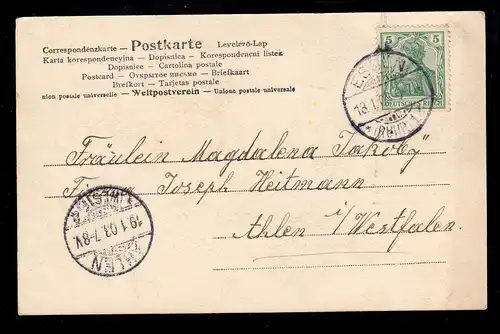 Correspondenzkarte — Postkarte — Levelező-Lap
Karta korespondencyjna — Dopisnica — Korespondenční lístek
Dopisnice — Cartolina postale
Postcard — Открытое письмо — Briefkaart
Brefkort — Tarjetas postale
nion postale universelle — Weltpostverein — Unione postale universale
5 5
DEUTSCHES REICH
18.1.
(RUHR) 1
Fräulein Magdalena Jakoby
Firma Joseph Heitmann
Ahlen i/Westfalen.
(WESTF.)
19.1.03.7-8V.
AHLEN